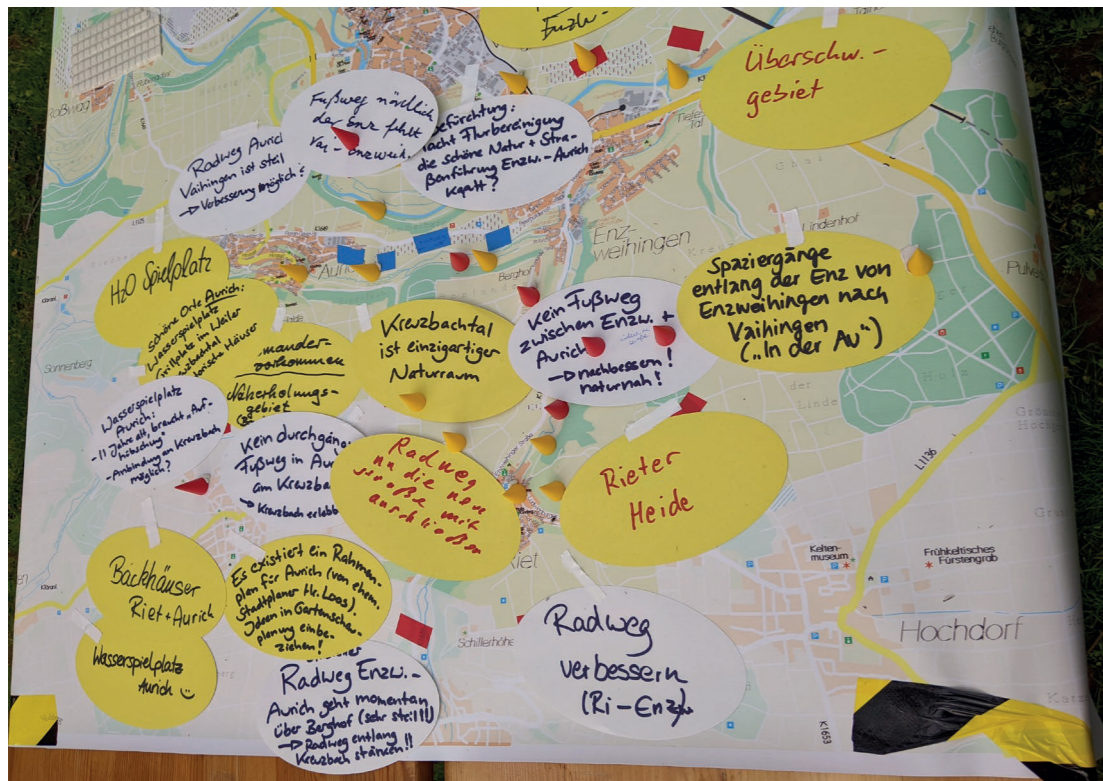 Enzw-
Überschw.-
gebiet
Fußweg nördlich
der Enz fehlt
Vai-Enzweih.
Befürchtung:
macht Flurbereinigung
die schöne Natur + Stra-
ßenführung Enzw.-Aurich
kaputt?
Radweg Aurich
Vaihingen ist steil
→ Verbesserung möglich?
H2O Spielplatz
schöne Orte Aurich:
Wasserspielplatz
Grillplatz im Weiler
Kreuzbachtal
Häuser
vorkommen
Naherholungs-
gebiet
Kreuzbachtal
ist einzigartiger
Naturraum
Kein Fußweg
zwischen Enzw. +
Aurich
→ nachbessern!
naturnah!
Spaziergänge
entlang der Enz von
Enzweihingen nach
Vaihingen
("In der Au")
Wasserspielplatz
Aurich:
- 11 Jahre alt, braucht "Auf-
hübschung"
- Anbindung an Kreuzbach
möglich?
Kein durchgäng
Fußweg in Aur
am Kreuzba
→ Kreuzbach erlebb
Radweg
an die neue
Straße mit
anschließen
Rieter
Heide
Backhäuser
Riet + Aurich
Es existiert ein Rahmen-
plan für Aurich (von ehem.
Stadtplaner Hr. Loos).
Ideen in Gartenschau-
planung einbe-
ziehen!
Wasserspielplatz
Aurich
Radweg Enzw.-
Aurich geht momentan
über Berghof (sehr steil!!!)
→ Radweg entlang
Kreuzbach stärken!!
Radweg
verbessern
(Ri-Enz)
Roßwag
Aurich
Enz-
weihingen
Berghof
Lindenhof
Pulver
Sonnenberg
Riet
Schillerhöhe
Kelten-
museum
Frühkeltisches
Fürstengrab
Hochdorf
L1136
L1125
K1653